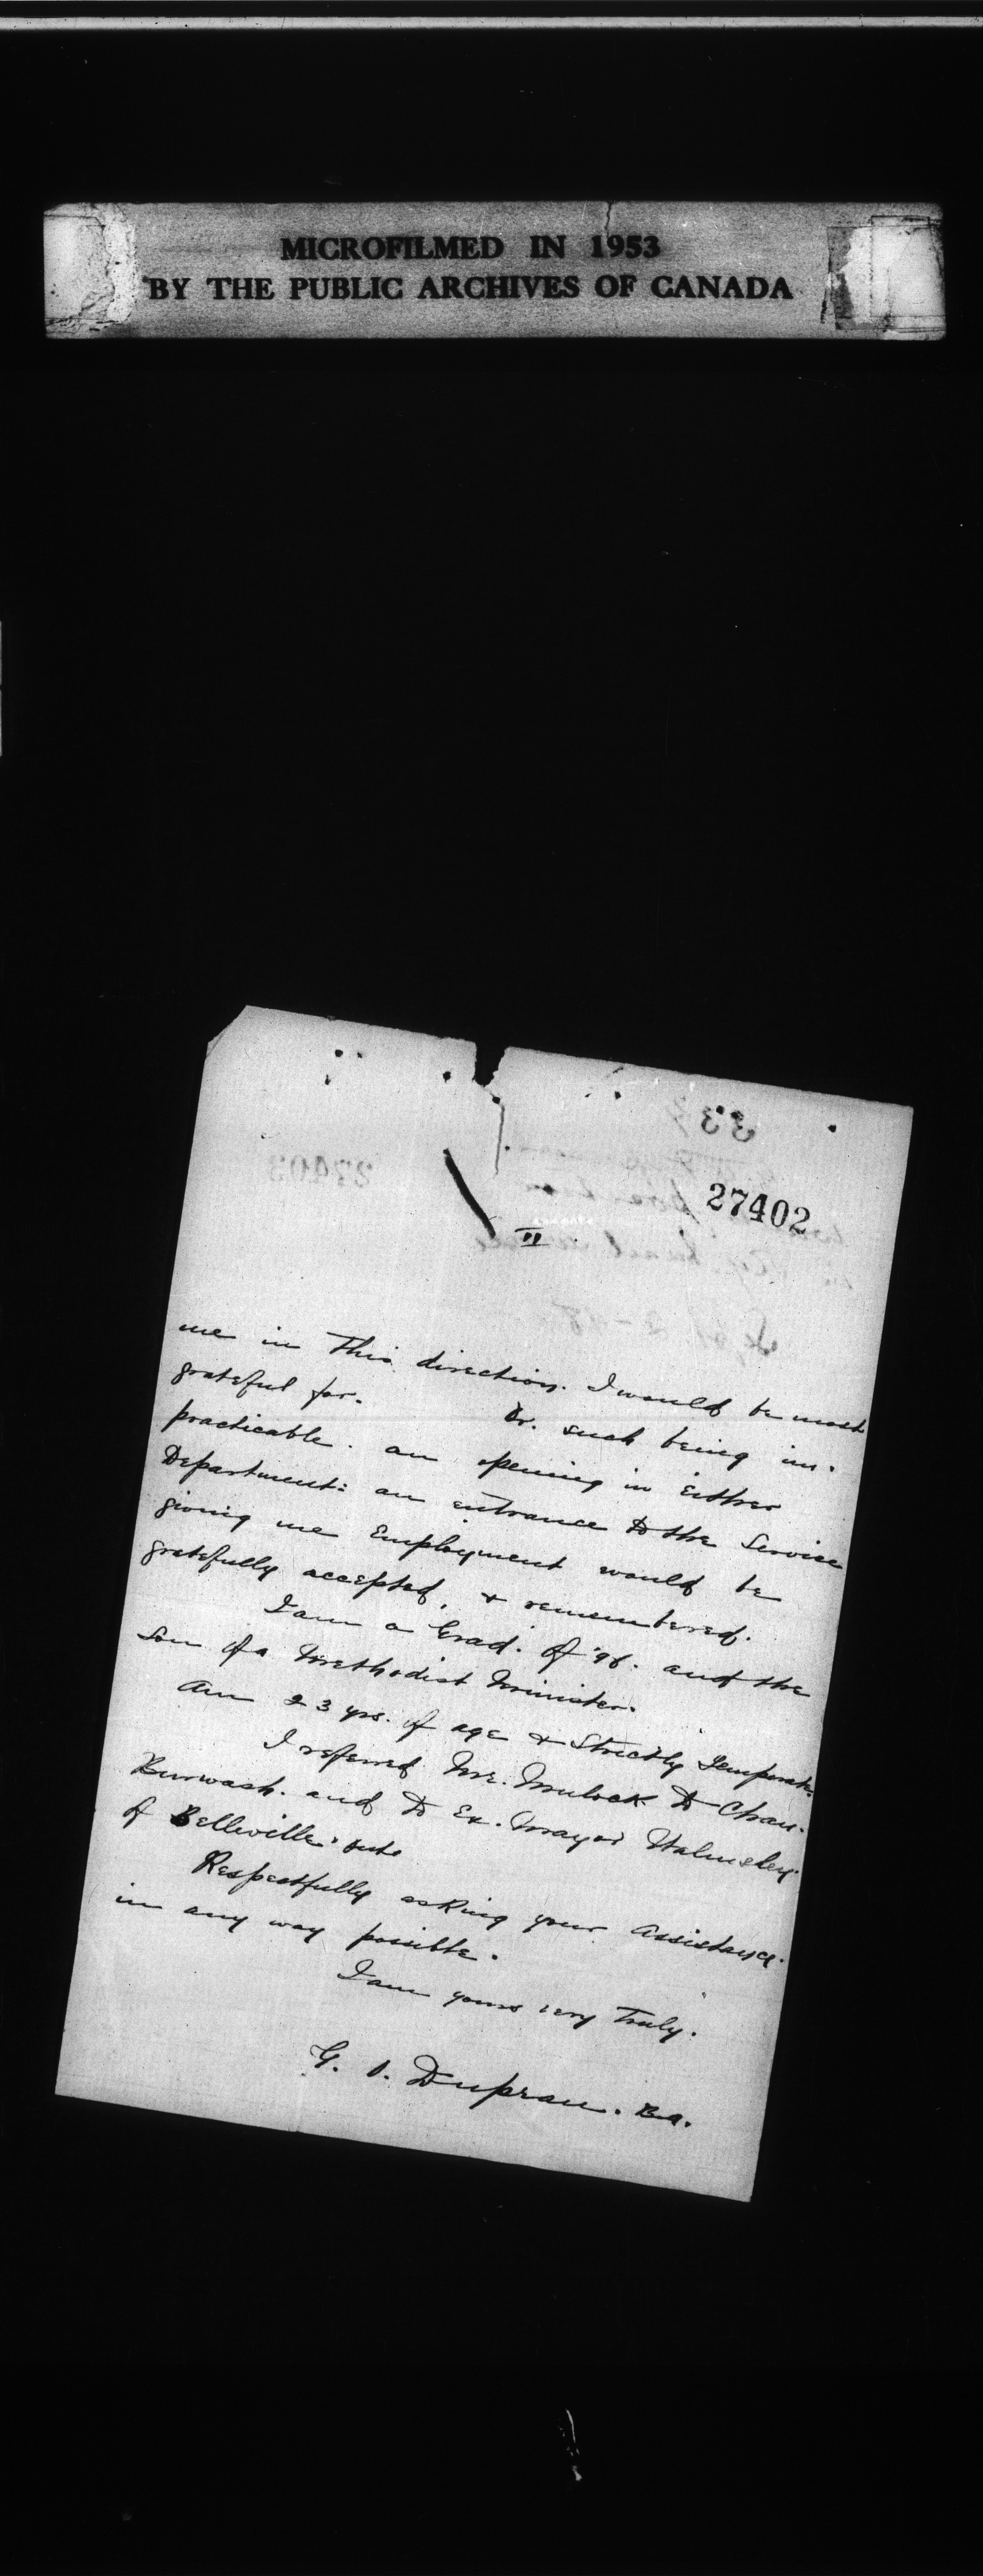 MICROFILMED IN 1953
BY THE PUBLIC ARCHIVES OF CANADA
27402
II
me in this direction. I would be most
grateful for.
Or. such being im-
practicable. an opening in Either
Department: an entrance to the Service
giving me Employment would be
gratefully accepted, & remembered.
I am a Grad. of '98. and the
Son of a Methodist Minister.
Am 23 yrs. of age & Strictly Temperate.
I referred Mr. Mulock to Chan.
Burwash. and to Ex. Mayor Walmsley.
of Belleville. Ont.
Respectfully asking your assistance.
in any way possible.
I am yours very Truly.
G. Duprau. B.A.